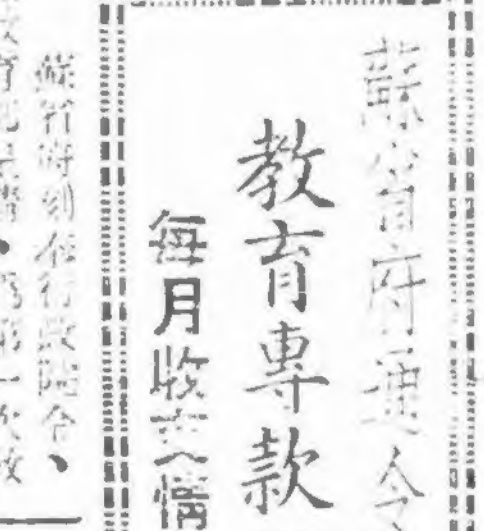 蘇省府通令
教育專款
每月收支情
蘇省府刻奉行政院令、